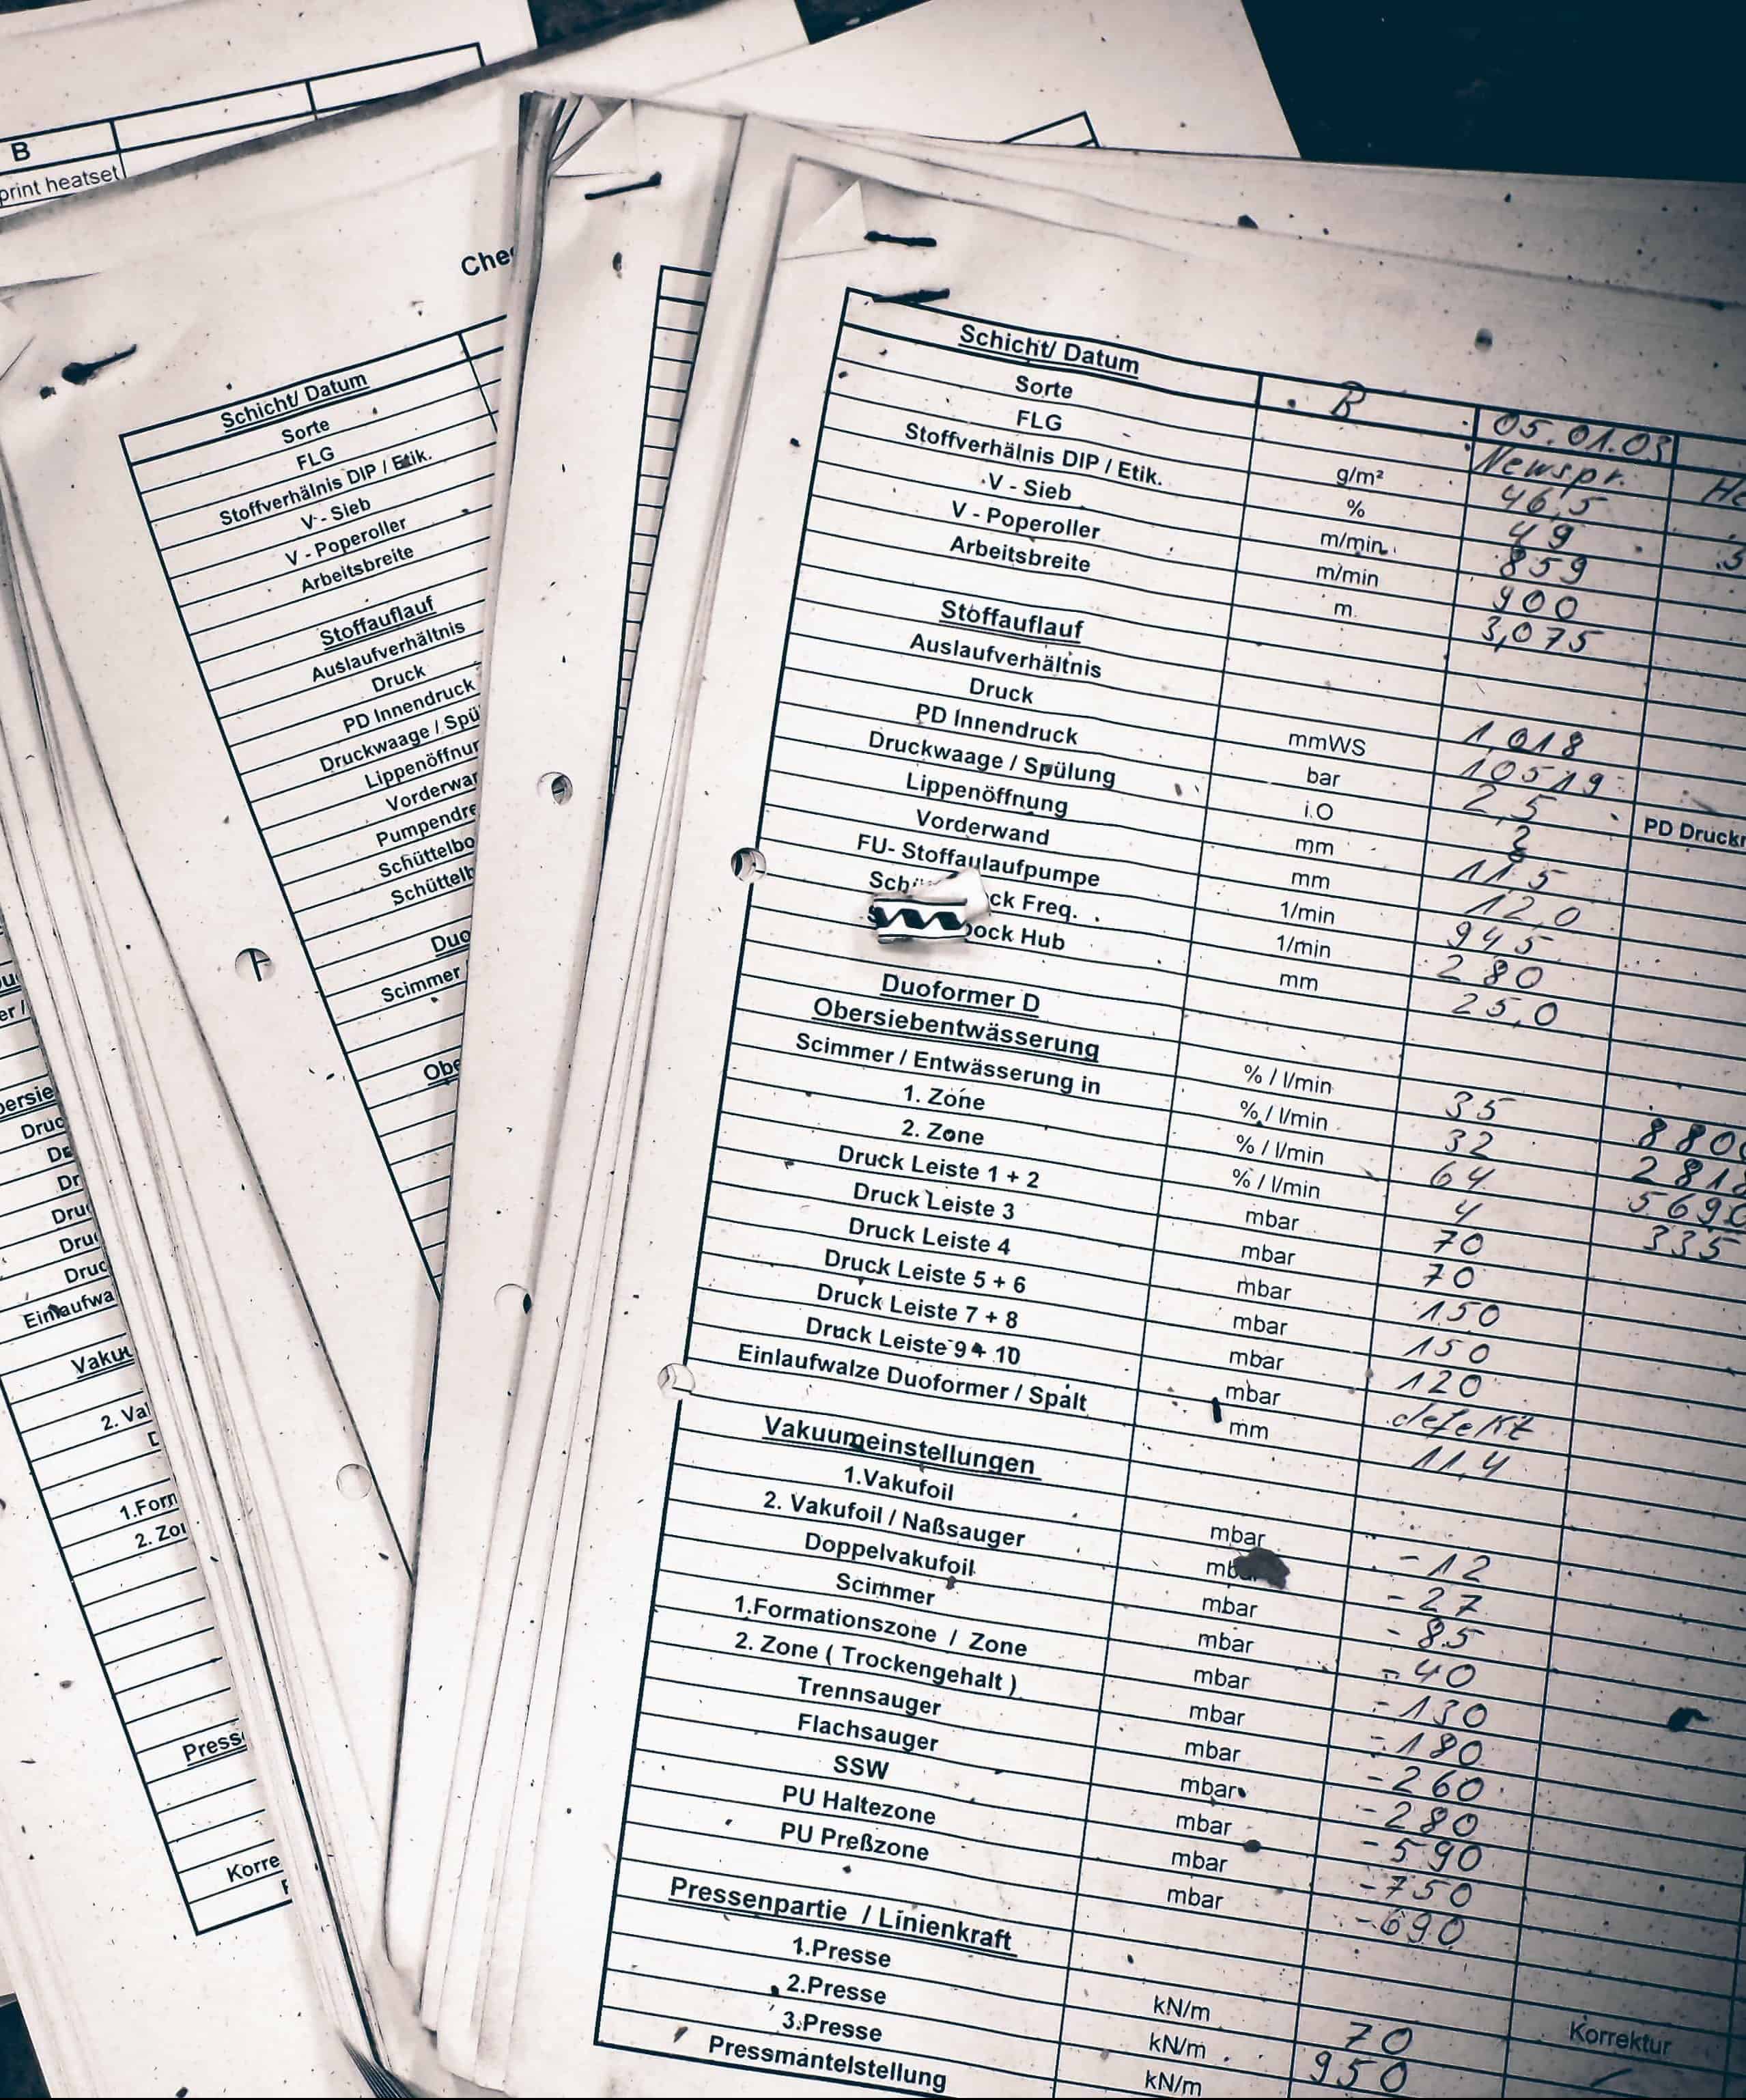 B
print heatset
Che
Schicht/ Datum
Sorte
FLG
Stoffverhälnis DIP / Etik.
V - Sieb
V - Poperoller
Arbeitsbreite
Stoffauflauf
Auslaufverhältnis
Druck
PD Innendruck
Druckwaage / Spü
Lippenöffnun
Vorderwan
Pumpendre
Schüttelbo
Schüttelb
Duo
Scimmer
Obe
bersie
Druc
Dru
Dru
Druc
Einlaufwa
Vakuu
2. Val
1.Form
2. Zon
Press
Korre
Schicht/ Datum B 05.01.03
Sorte Newspr.
FLG g/m² 46,5
Stoffverhälnis DIP / Etik. % 49
V - Sieb m/min 859
V - Poperoller m/min 900
Arbeitsbreite m 3,075
Stoffauflauf
Auslaufverhältnis 1,018
Druck mmWS 10519
PD Innendruck bar 2,5
Druckwaage / Spülung i.O 2 PD Druckr
Lippenöffnung mm 11,5
Vorderwand mm 12,0
FU- Stoffaulaufpumpe 1/min 945
Sch ck Freq. 1/min 280
ock Hub mm 25,0
Duoformer D
Obersiebentwässerung
Scimmer / Entwässerung in % / l/min 35 880
1. Zone % / l/min 32 281
2. Zone % / l/min 64 569
% / l/min 4 335
Druck Leiste 1 + 2 mbar 70
Druck Leiste 3 mbar 70
Druck Leiste 4 mbar 150
Druck Leiste 5 + 6 mbar 150
Druck Leiste 7 + 8 mbar 120
Druck Leiste 9 + 10 mbar defekt
Einlaufwalze Duoformer / Spalt mm 11,4
Vakuumeinstellungen
1.Vakufoil mbar -12
2. Vakufoil / Naßsauger mbar -27
Doppelvakufoil mbar -85
Scimmer mbar -40
1.Formationszone / Zone mbar -130
2. Zone ( Trockengehalt ) mbar -180
Trennsauger mbar -260
Flachsauger mbar -280
SSW mbar -590
PU Haltezone mbar -750
PU Preßzone mbar -690
Pressenpartie / Linienkraft
1.Presse kN/m 70 Korrektur
2.Presse kN/m 950
3.Presse kN/m
Pressmantelstellung